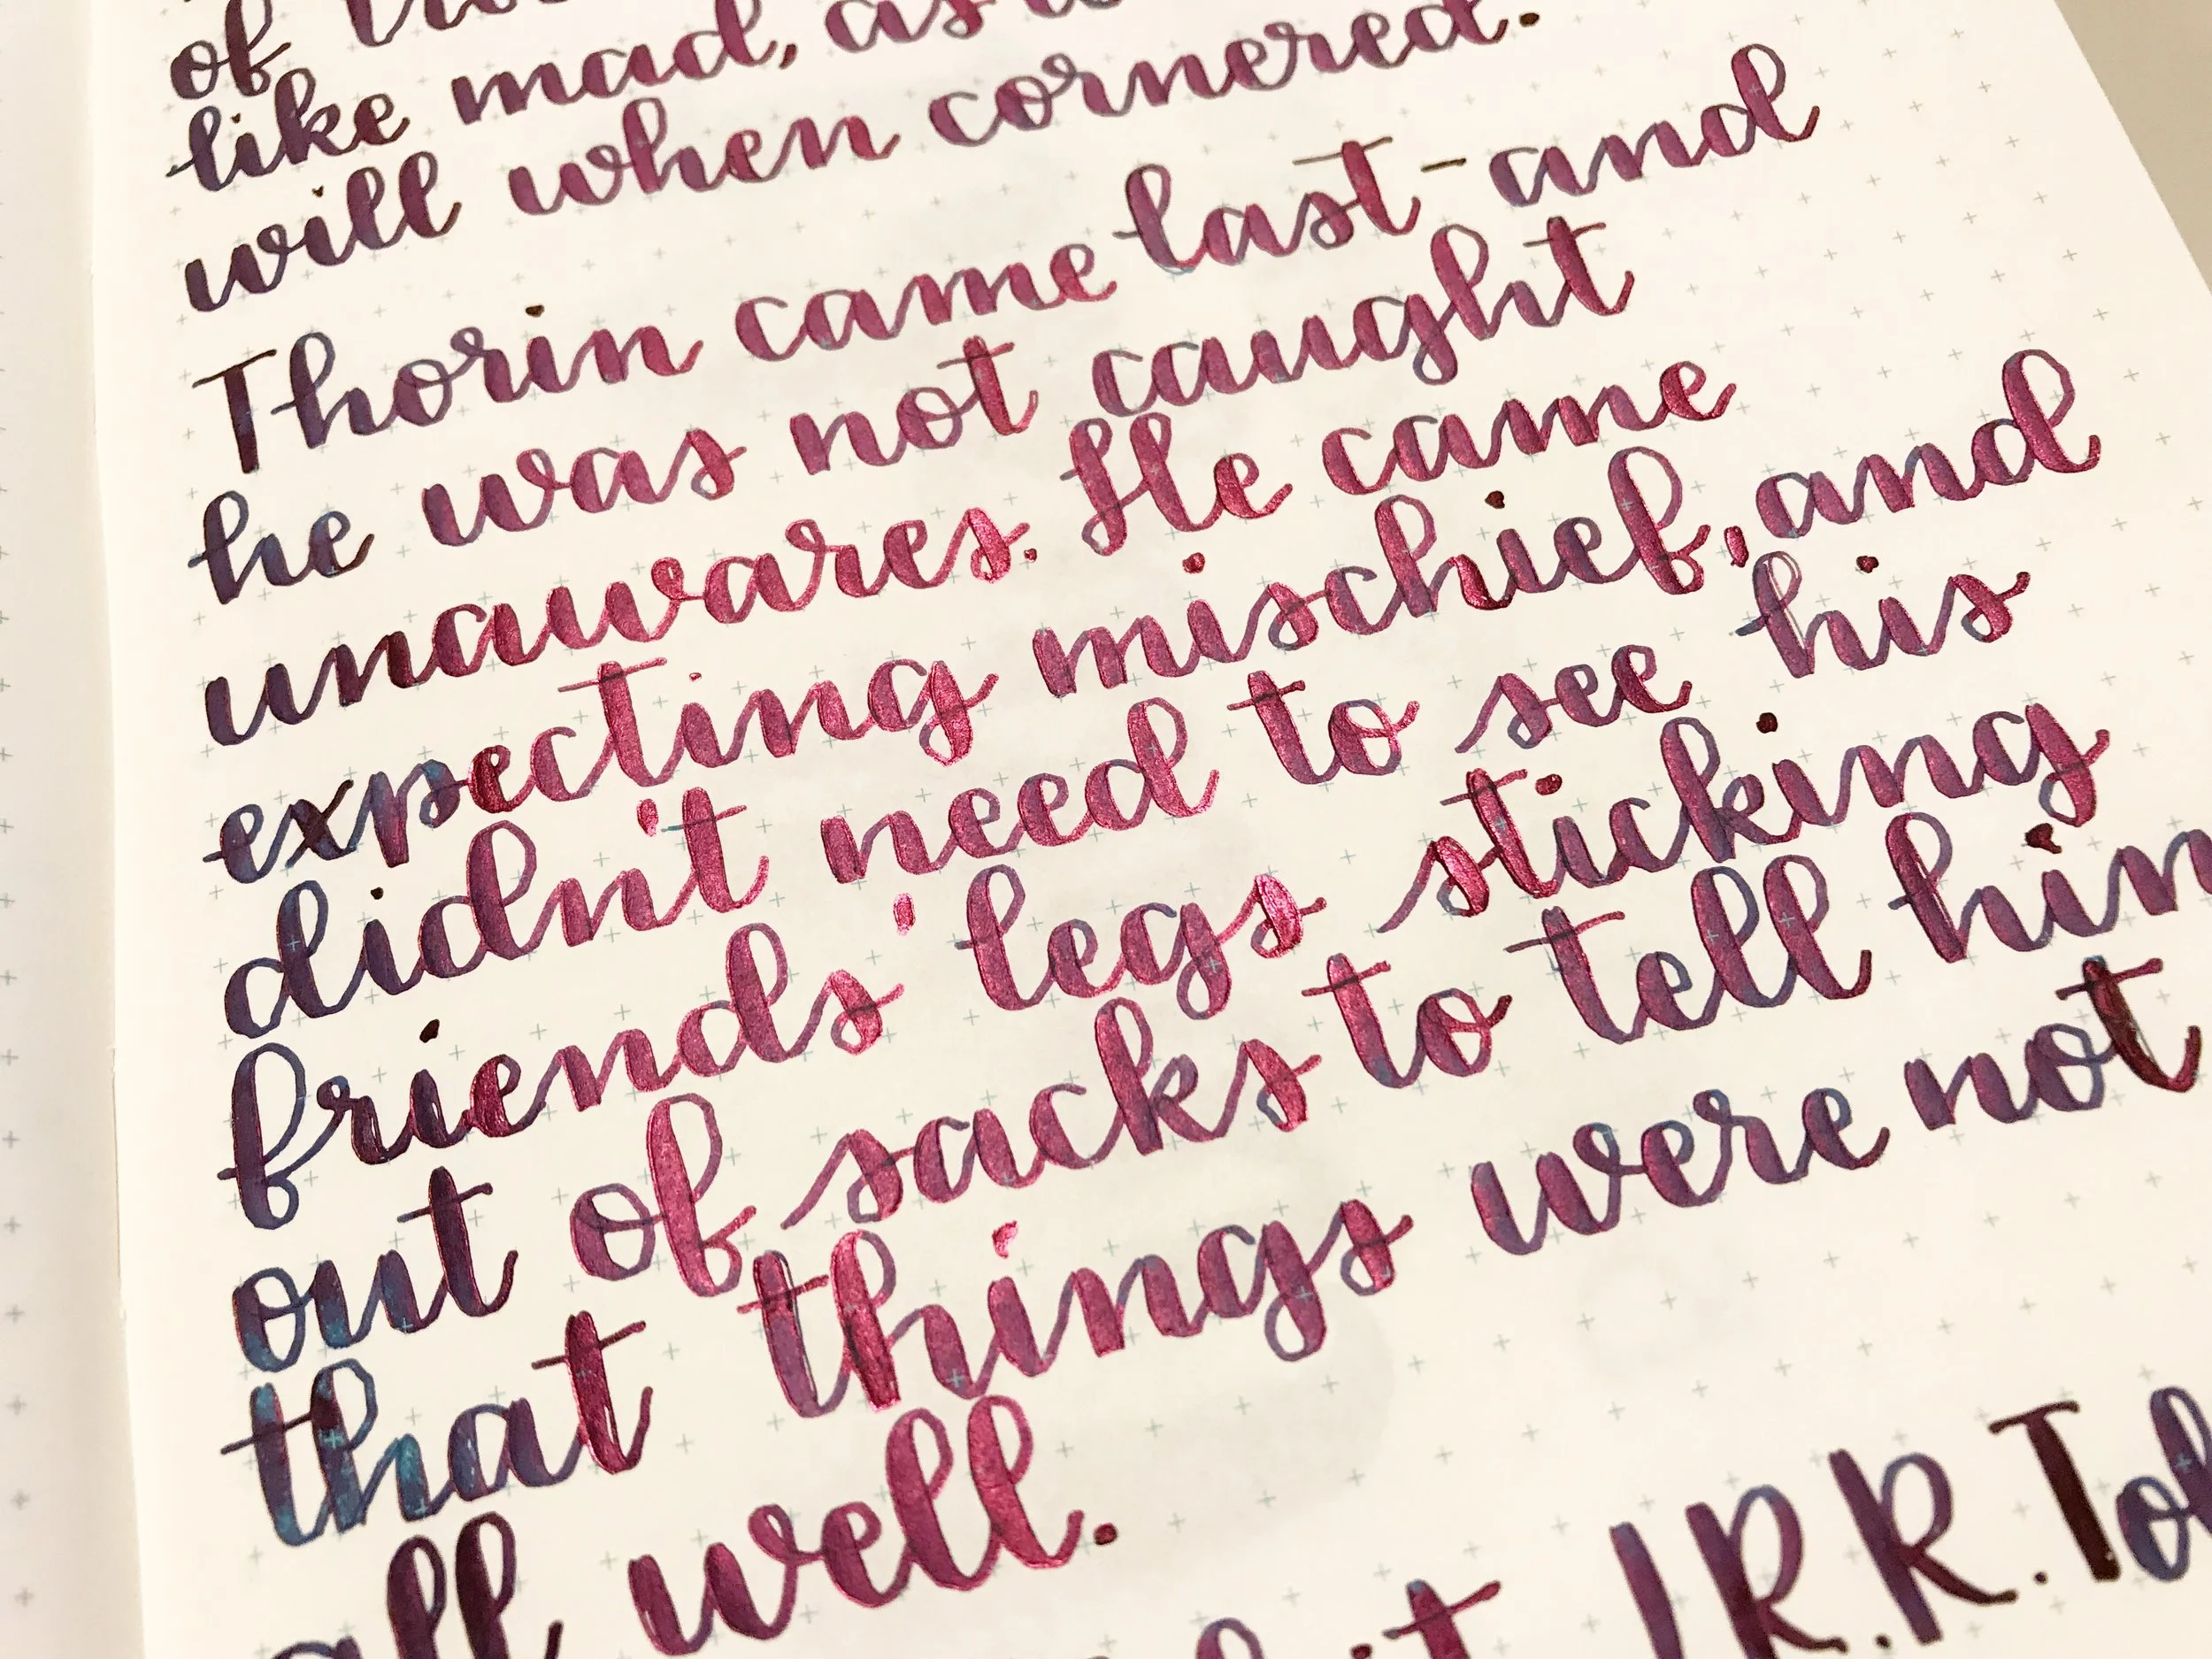 of
like mad, as
will when cornered.
Thorin came last-and
he was not caught
unawares. He came
expecting mischief, and
didn't need to see his
friends' legs sticking
out of sacks to tell him
that things were not
all well.
J.R.R. Tol